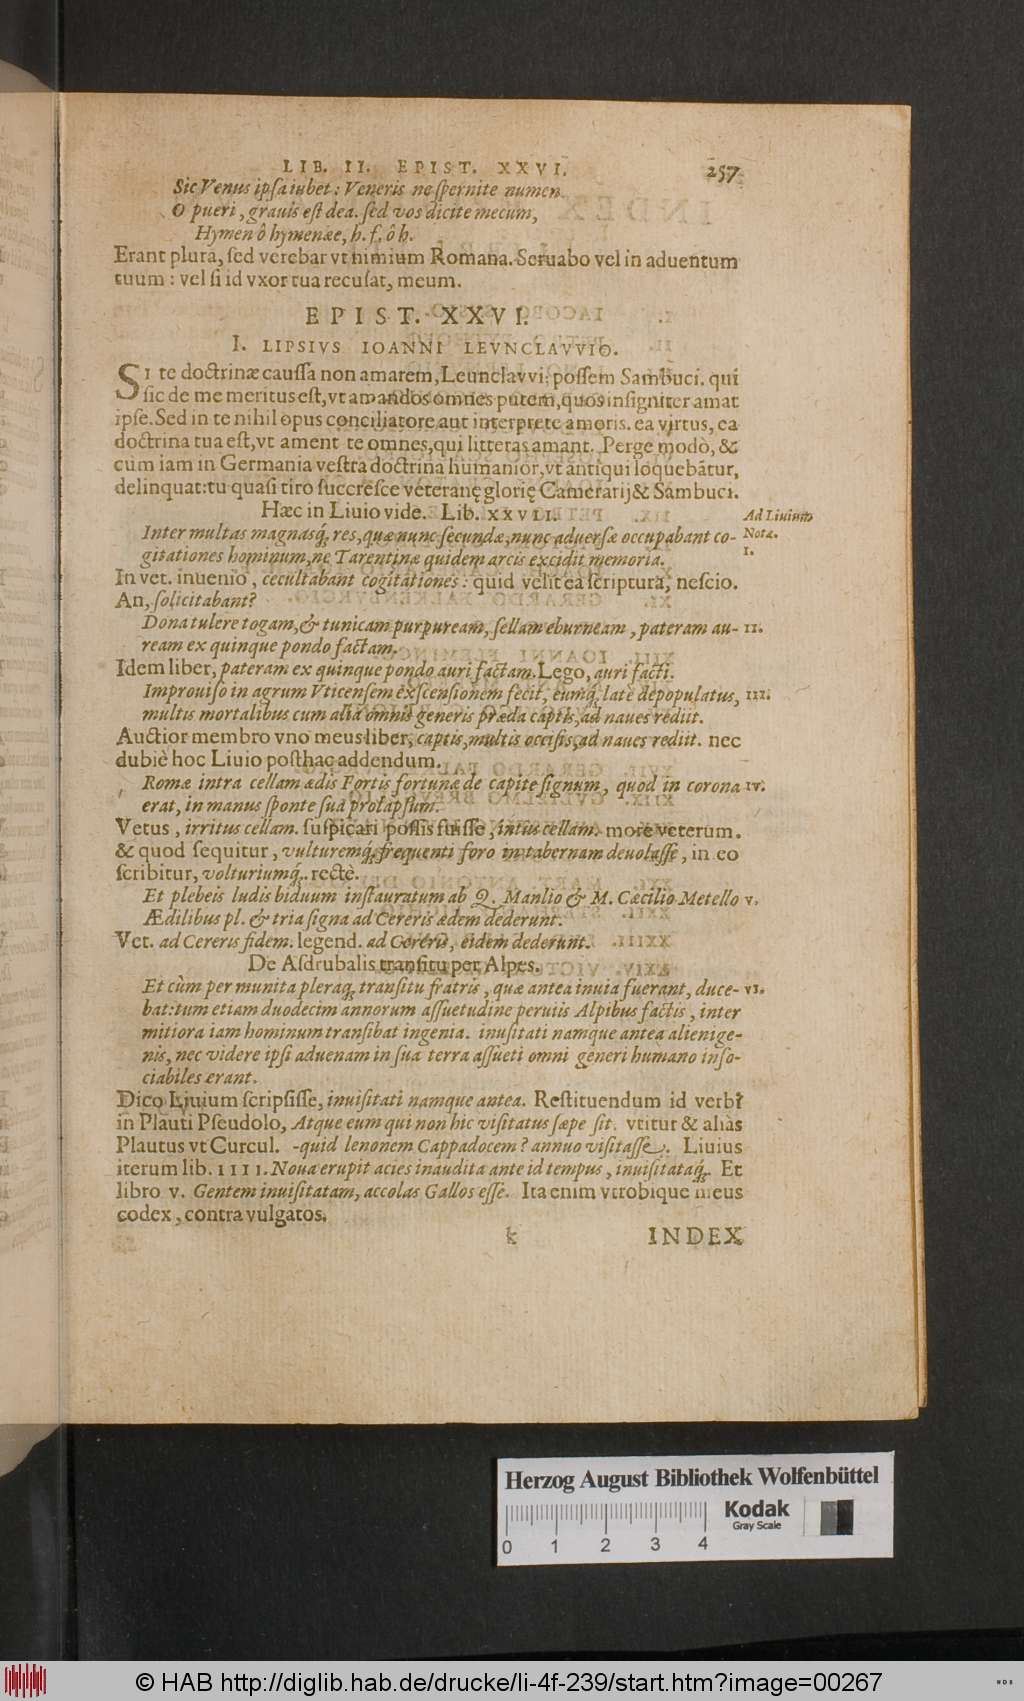 LIB. II. EPIST. XXVI. 257
Sic Venus ipsa iubet: Veneris ne spernite numen.
O pueri, grauis est dea. sed vos dicite mecum,
Hymen ô hymenæe, h. f. ô h.
Erant plura, sed verebar vt nimium Romana. Seruabo vel in aduentum
tuum: vel si id vxor tua recusat, meum.
EPIST. XXVI.
I. LIPSIVS IOANNI LEVNCLAVVIO.
SI te doctrinæ caussa non amarem, Leunclavvi: possem Sambuci. qui
sic de me meritus est, vt amandos omnes putem, quos insigniter amat
ipse. Sed in te nihil opus conciliatore aut interprete amoris. ea virtus, ea
doctrina tua est, vt ament te omnes, qui litteras amant. Perge modò, &
cùm iam in Germania vestra doctrina humanior, vt antiqui loquebātur,
delinquat: tu quasi tiro succresce veteranę glorię Camerarij & Sambuci.
Hæc in Liuio vide. Lib. XXVII.
Ad Liuium
Notæ.
Inter multas magnasq́; res, quæ nunc secundæ, nunc aduersæ occupabant co-
I.
gitationes hominum, ne Tarentinæ quidem arcis excidit memoria.
In vet. inuenio, cecultabant cogitationes: quid velit ea scriptura, nescio.
An, solicitabant?
Dona tulere togam, & tunicam purpuream, sellam eburneam, pateram au- II.
ream ex quinque pondo factam.
Idem liber, pateram ex quinque pondo auri factam. Lego, auri facti.
Improuiso in agrum Vticensem exscensionem fecit, eumq́; latè depopulatus, III.
multis mortalibus cum alia omnis generis præda captis, ad naues rediit.
Auctior membro vno meus liber, captis, multis occisis, ad naues rediit. nec
dubiè hoc Liuio posthac addendum.
Romæ intra cellam ædis Fortis fortunæ de capite signum, quod in corona IV.
erat, in manus sponte sua prolapsum.
Vetus, irritus cellam. suspicari possis fuisse, intus cellam. more veterum.
& quod sequitur, vulturemq́; frequenti foro in tabernam deuolasse, in eo
scribitur, volturiumq́;. rectè.
Et plebeis ludis biduum instauratum ab Q. Manlio & M. Cæcilio Metello V.
Ædilibus pl. & tria signa ad Cereris ædem dederunt.
Vet. ad Cereris fidem. legend. ad Cereris, eidem dederunt.
De Asdrubalis transitu per Alpes.
Et cùm per munita pleraq́; transitu fratris, quæ antea inuia fuerant, duce- VI.
bat: tum etiam duodecim annorum assuetudine peruiis Alpibus factis, inter
mitiora iam hominum transibat ingenia. inusitati namque antea alienige-
nis, nec videre ipsi aduenam in sua terra assueti omni generi humano inso-
ciabiles erant.
Dico Liuium scripsisse, inuisitati namque antea. Restituendum id verbū
in Plauti Pseudolo, Atque eum qui non hic visitatus sæpe sit. vtitur & aliàs
Plautus vt Curcul. -quid lenonem Cappadocem? annuo visitasse. Liuius
iterum lib. IIII. Noua erupit acies inaudita ante id tempus, inuisitataq́;. Et
libro V. Gentem inuisitatam, accolas Gallos esse. Ita enim vtrobique meus
codex, contra vulgatos.
k INDEX
Herzog August Bibliothek Wolfenbüttel
0 1 2 3 4
Kodak
Gray Scale
© HAB http://diglib.hab.de/drucke/li-4f-239/start.htm?image=00267